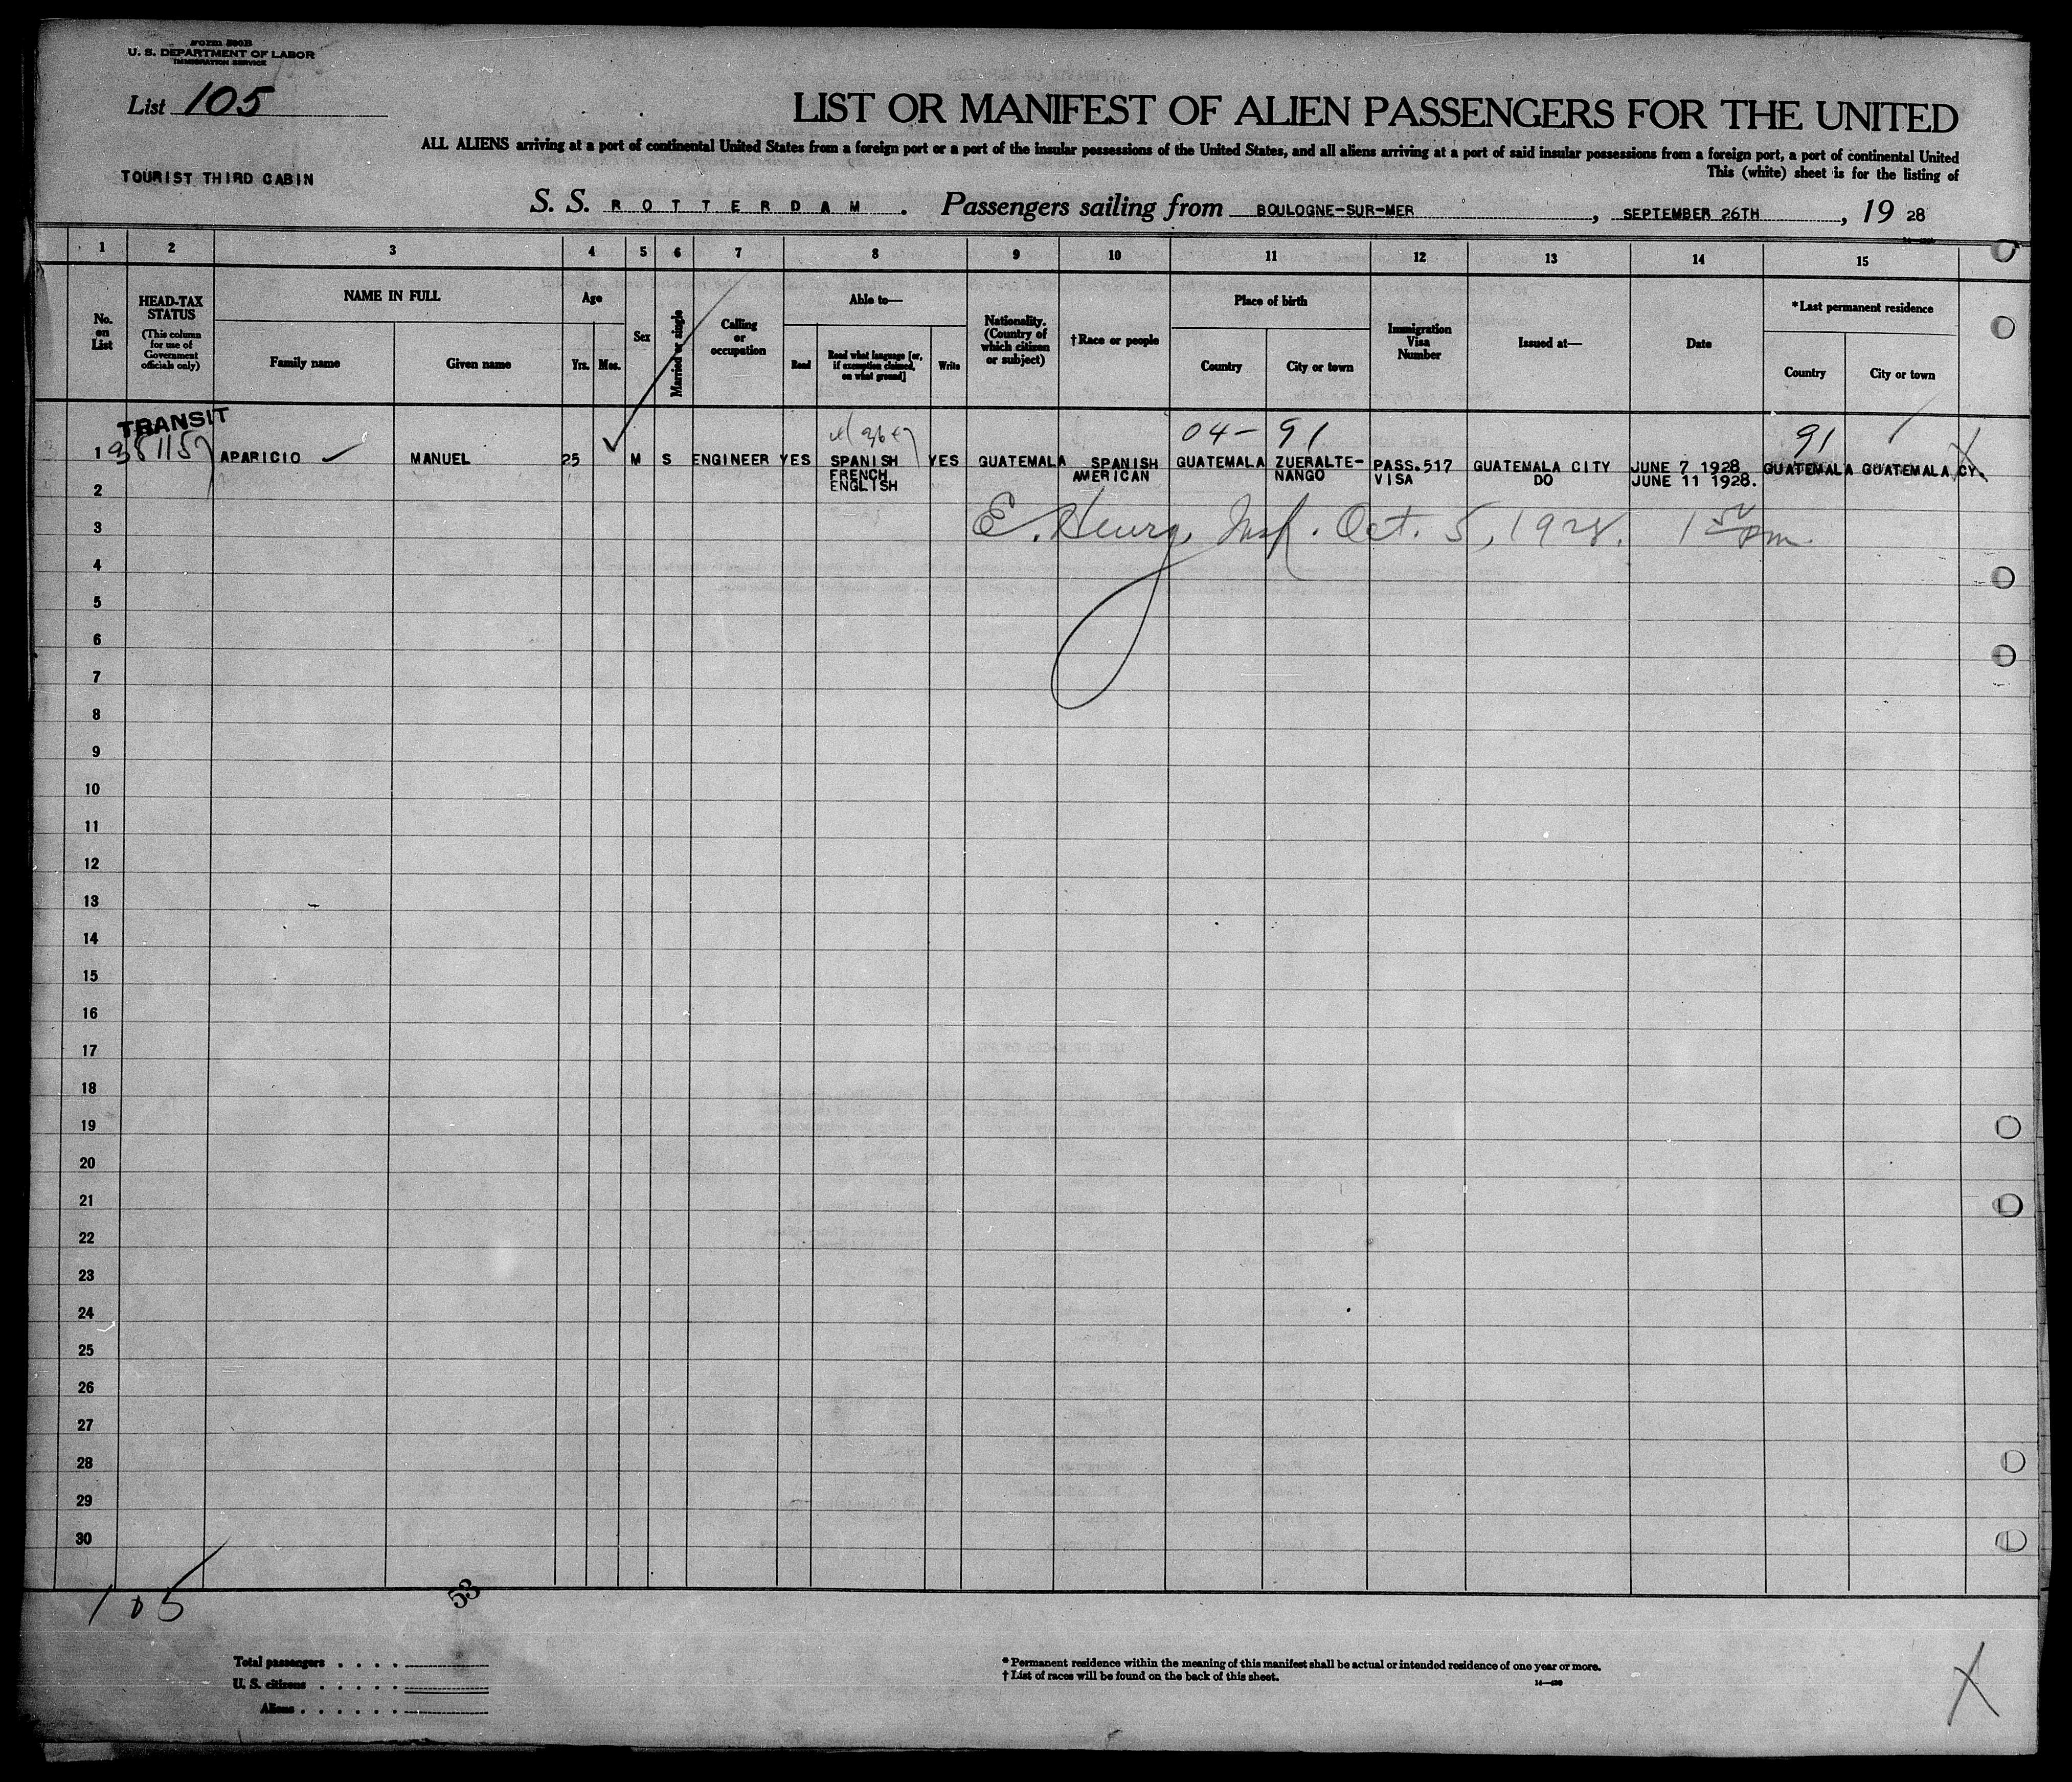 Form 500B
U. S. DEPARTMENT OF LABOR
IMMIGRATION SERVICE
List 105
LIST OR MANIFEST OF ALIEN PASSENGERS FOR THE UNITED
ALL ALIENS arriving at a port of continental United States from a foreign port or a port of the insular possessions of the United States, and all aliens arriving at a port of said insular possessions from a foreign port, a port of continental United
This (white) sheet is for the listing of
TOURIST THIRD CABIN
S. S. ROTTERDAM. Passengers sailing from BOULOGNE-SUR-MER, SEPTEMBER 26TH, 19 28
1 2 3 4 5 6 7 8 9 10 11 12 13 14 15
No. on List
HEAD-TAX STATUS
(This column for use of Government officials only)
NAME IN FULL
Family name
Given name
Age
Yrs. Mos.
Sex
Married or single
Calling or occupation
Able to—
Read
Read what language [or, if exemption claimed, on what ground]
Write
Nationality. (Country of which citizen or subject)
†Race or people
Place of birth
Country
City or town
Immigration Visa Number
Issued at—
Date
*Last permanent residence
Country
City or town
TRANSIT
04- 91
91
1 APARICIO MANUEL 25 M S ENGINEER YES SPANISH YES GUATEMALA SPANISH GUATEMALA ZUERALTE- PASS.517 GUATEMALA CITY JUNE 7 1928 GUATEMALA GUATEMALA CY.
FRENCH AMERICAN NANGO VISA DO JUNE 11 1928.
ENGLISH
2
3 E. Henry, Insp. Oct. 5, 1928. 1 pm
4
5
6
7
8
9
10
11
12
13
14
15
16
17
18
19
20
21
22
23
24
25
26
27
28
29
30
105
53
Total passengers . . . .
U. S. citizens . . . . .
Aliens . . . . . .
* Permanent residence within the meaning of this manifest shall be actual or intended residence of one year or more.
† List of races will be found on the back of this sheet.